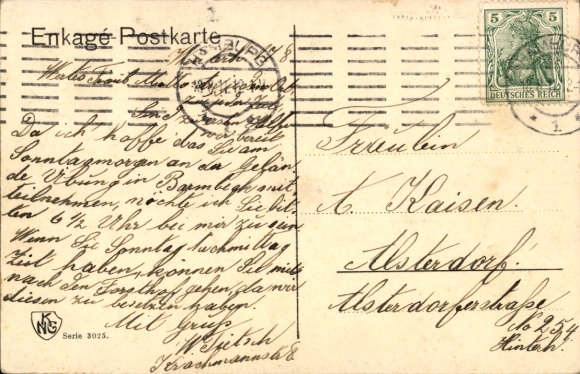 Enkagé-Postkarte
HAMBURG
5 5
DEUTSCHES REICH
1.
Da ich hoffe das Sie am
Sonntagmorgen an der Gelän-
de Übung in Barmbeck mit
teilnehmen, möchte ich Sie bit-
ten 6 1/2 Uhr bei mir zu sein
Wenn Sie Sonntag Nachmittag
Zeit haben, können Sie mit
nach den Forsthof gehen da wir
diesen zu besetzen haben.
Mit Gruß
W.
Fräulein
A. Kaisen.
Alsterdorf.
Alsterdorferstraße
No 254
Hinterh.
KNG
Serie 3025.